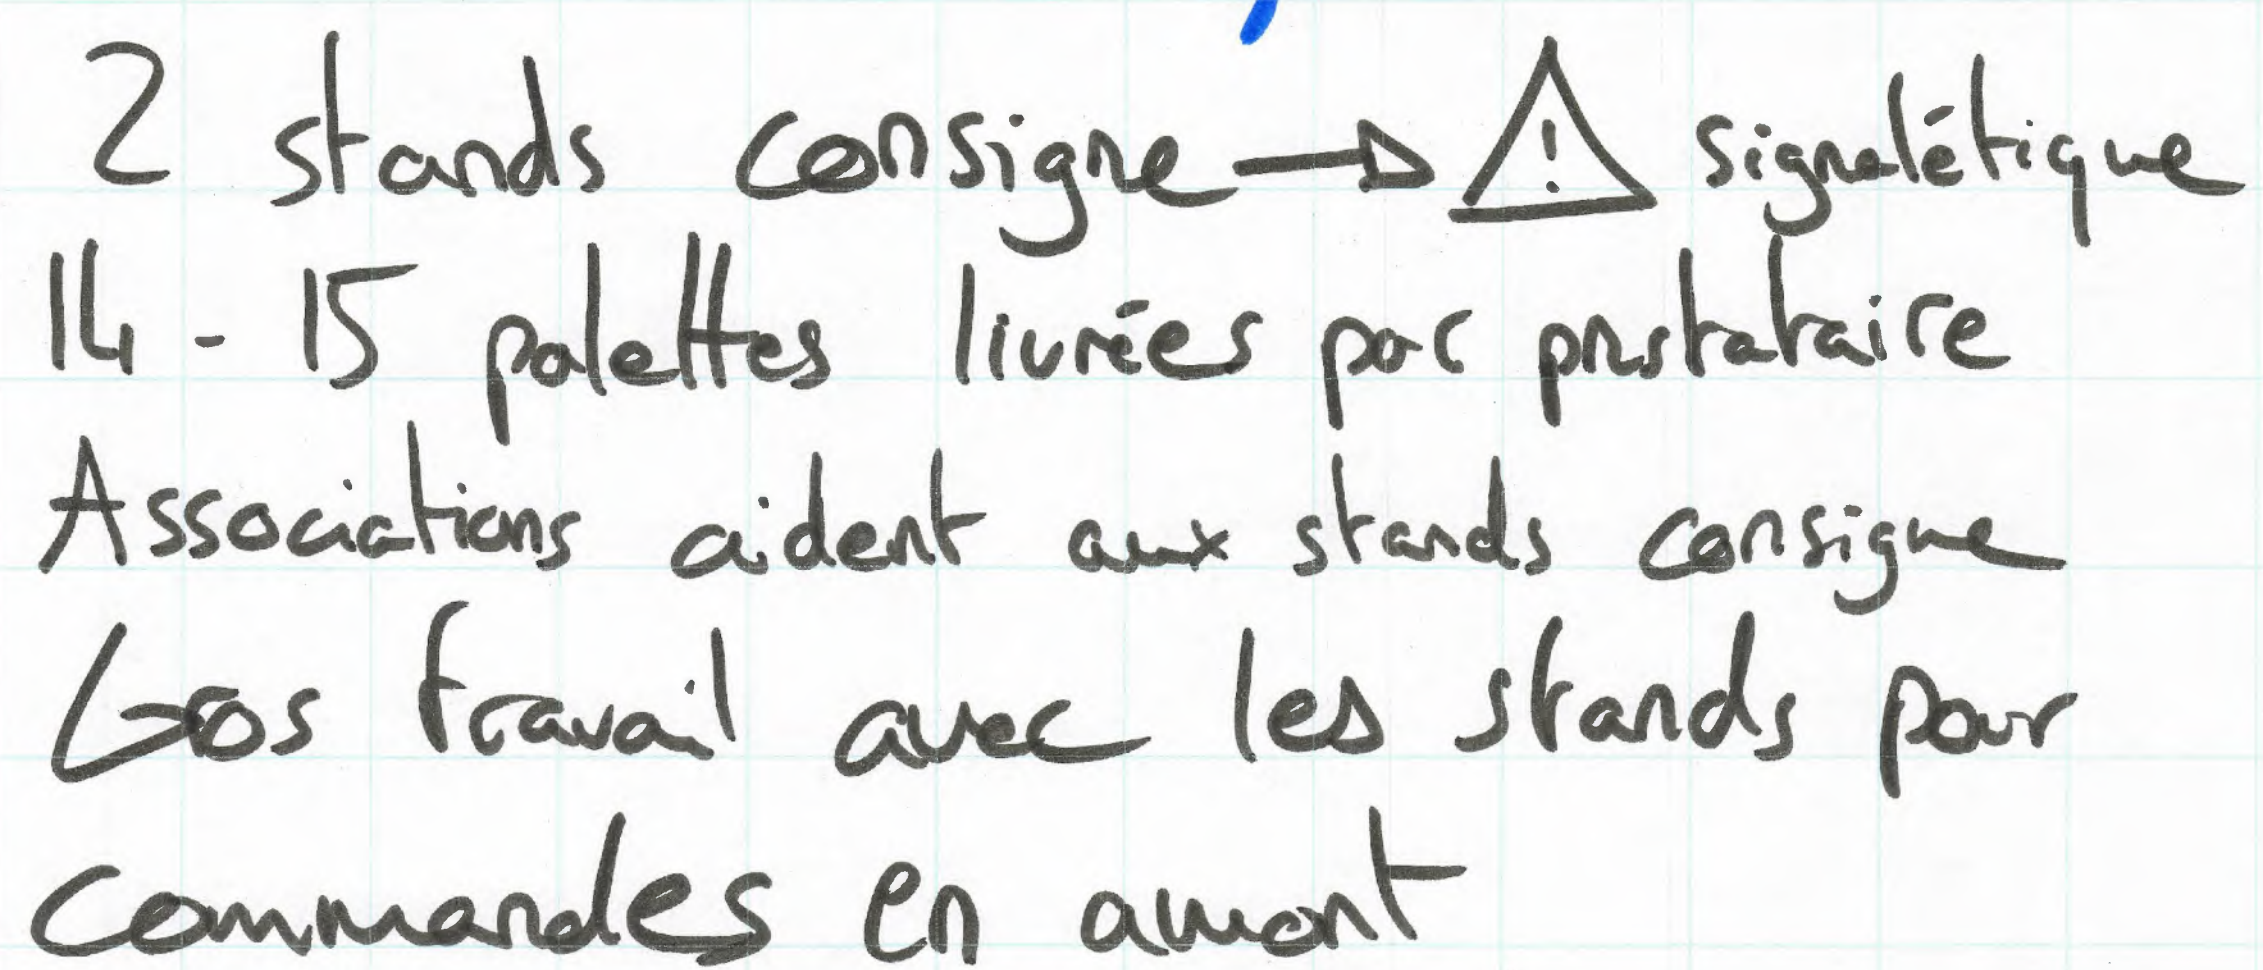 2 stands consigne → ⚠ signalétique
14 - 15 palettes livrées par prestataire
Associations aident aux stands consigne
Gros travail avec les stands pour
commandes en amont